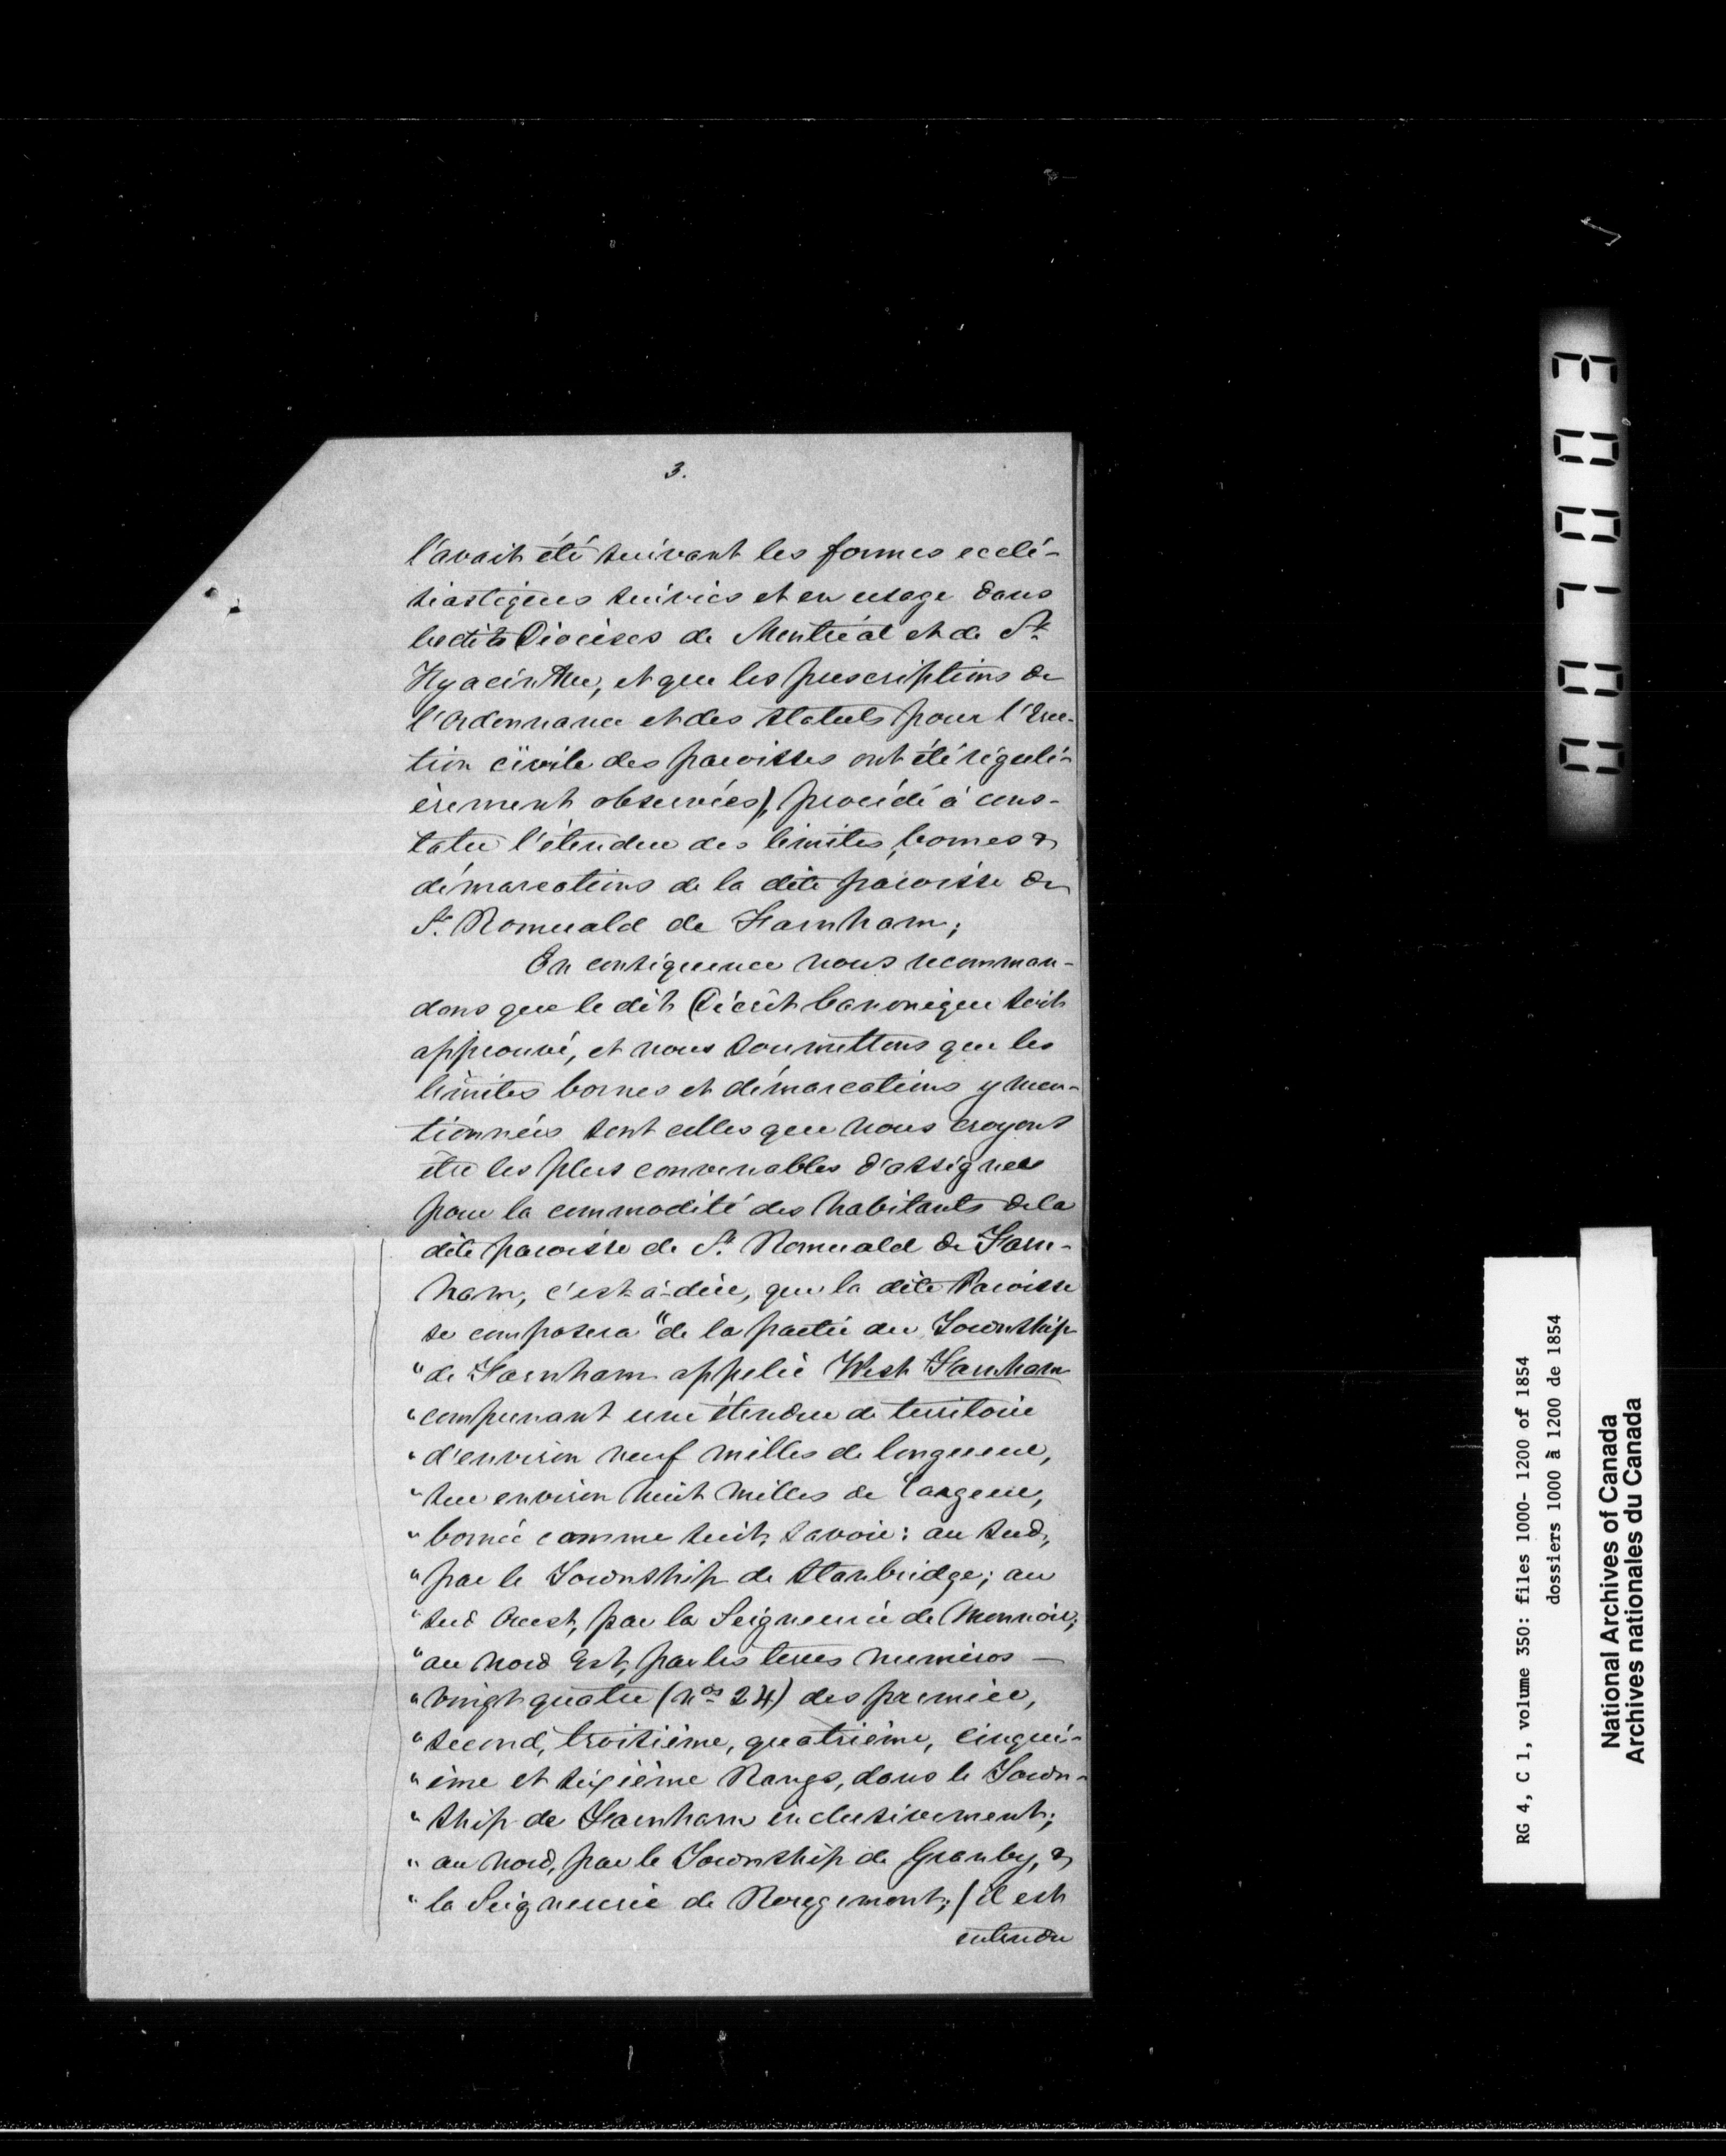 3.
l'avait été suivant les formes ecclé-
siastiques suivies et en usage dans
lesdits Diocèses de Montréal et de St
Hyacinthe, et que les prescriptions de
l'Ordonnance et des statuts pour l'Erec-
tion civile des paroisses ont été réguli-
èrement observées), procédé à cons-
tater l'étendue des limites, bornes &
démarcations de la dite paroisse de
St. Romuald de Farnham;
En conséquence nous recomman-
dons que le dit Décrêt Canonique soit
approuvé, et nous soumettons que les
limites bornes et démarcations y men-
tionnées sont celles que nous croyons
être les plus convenables d'assigner
pour la commodité des habitants de la
dite paroisse de St. Romuald de Farn-
ham, c'est-à-dire, que la dite Paroisse
se composera "de la partie du Township
"de Farnham appelée West Farnham
"comprenant une étendue de territoire
"d'environ neuf milles de longueur,
"sur environ huit milles de largeur,
"bornée comme suit, savoir: au sud,
"par le Township de Stanbridge; au
"sud Ouest, par la Seigneurie de Monnoir;
"au Nord Est, par les terres numéros —
"vingt quatre (nos 24) des premier,
"second, troisième, quatrième, cinqui-
"ème et sixième Rangs, dans le Town-
"ship de Farnham inclusivement;
"au Nord, par le Township de Granby, &
"la Seigneurie de Rougemont; (il est
entendu
E00L00
RG 4, C 1, volume 350: files 1000- 1200 of 1854
dossiers 1000 à 1200 de 1854
National Archives of Canada
Archives nationales du Canada